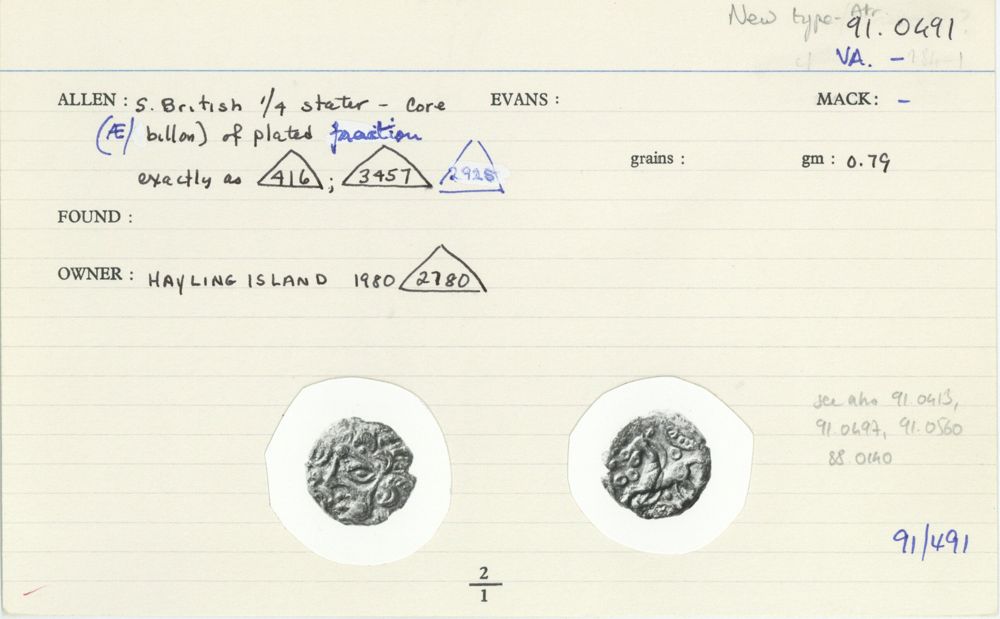 New type - Atr. ?
91.0491
cf VA. - 154-1
ALLEN : S. British 1/4 stater - Core EVANS : MACK: -
(Æ/ billon) of plated fraction
exactly as 416 ; 3457 2925 grains : gm : 0.79
FOUND :
OWNER : HAYLING ISLAND 1980 2780
see also 91.0413,
91.0497, 91.0560
88.0140
91/491
2
1